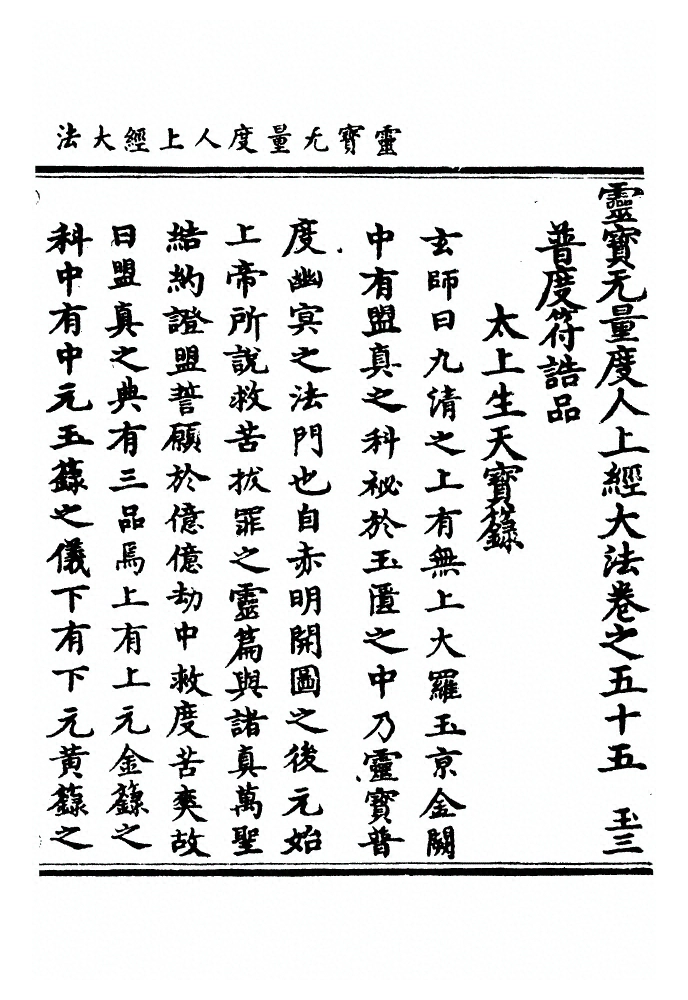 靈寶无量度人上經大法
靈寶无量度人上經大法卷之五十五 玉三
普度符誥品
太上生天寶籙
玄師曰九清之上有無上大羅玉京金闕
中有盟真之科祕於玉匱之中乃靈寶普
度幽冥之法門也自赤明開圖之後元始
上帝所說救苦拔罪之靈篇與諸真萬聖
結約證盟誓願於億億劫中救度苦爽故
曰盟真之典有三品焉上有上元金籙之
科中有中元玉籙之儀下有下元黃籙之